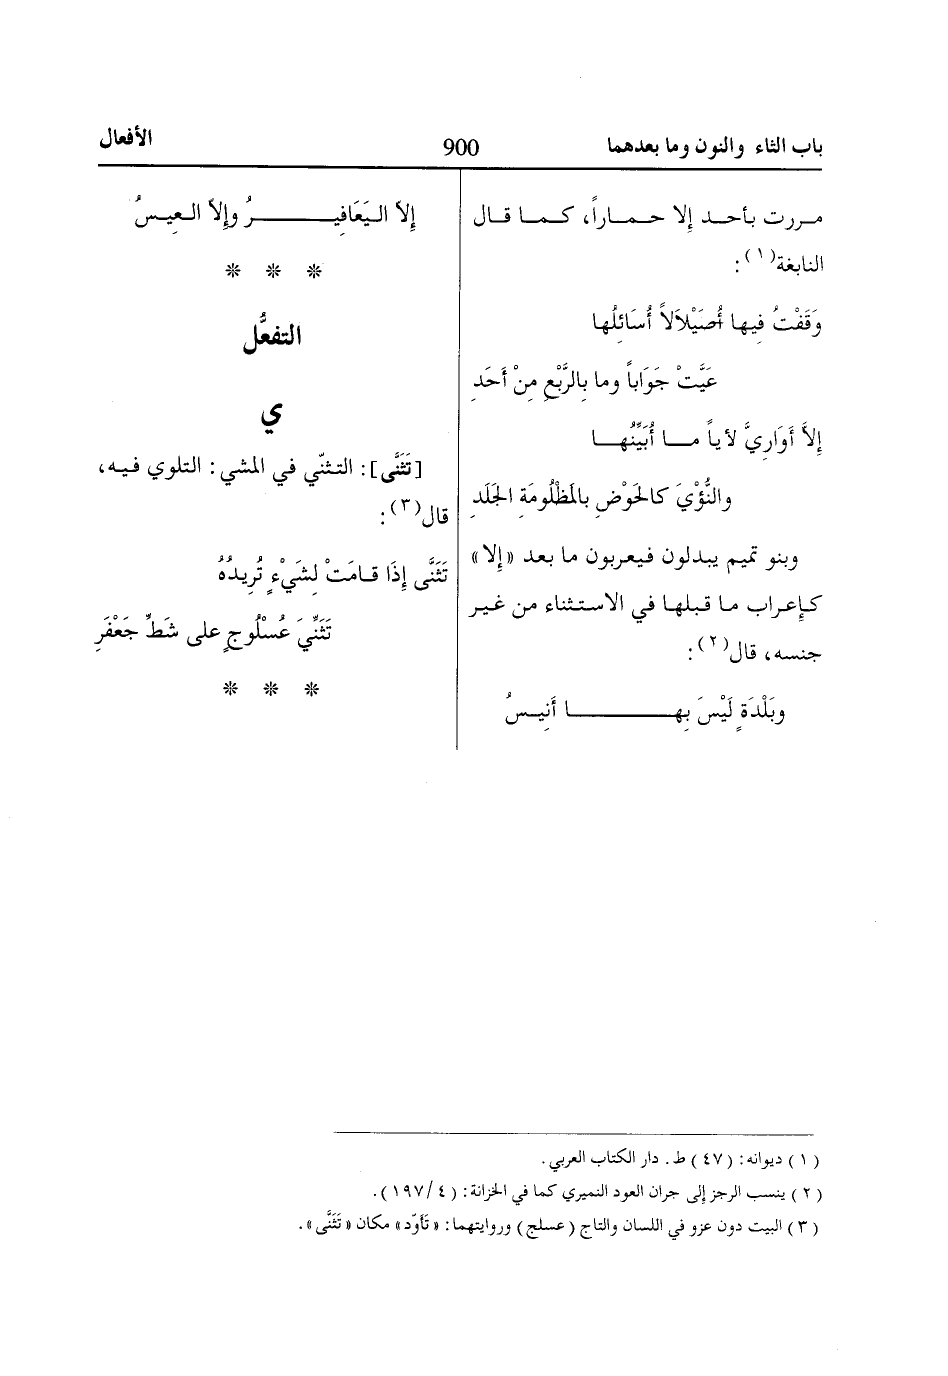 باب الثاء والنون وما بعدهما 900 الأفعال
مررت بأحد إلا حماراً، كما قال
النابغة(١):
وَقَفْتُ فِيها أُصَيْلاَلاً أُسَائِلُها
عَيَّتْ جَوَاباً وما بِالرَّبْعِ مِنْ أَحَدِ
إِلاَّ أَوَارِيَّ لأياً ما أُبَيِّنُها
والنُّؤْيَ كالحَوْضِ بالمَظْلُومَةِ الجَلَدِ
وبنو تميم يبدلون فيعربون ما بعد «إلا»
كإعراب ما قبلها في الاستثناء من غير
جنسه، قال(٢):
وبَلْدَةٍ لَيْسَ بِها أَنِيسُ
إِلاَّ اليَعَافِيرُ وإِلاَّ العِيسُ
* * *
التفعُّل
ي
[تَثَنَّى]: التثنّي في المشي: التلوي فيه،
قال(٣):
تَثَنَّى إِذَا قامَتْ لِشَيْءٍ تُرِيدُهُ
تَثَنِّيَ عُسْلُوجٍ على شَطِّ جَعْفَرِ
* * *
(١) ديوانه: (٤٧) ط. دار الكتاب العربي.
(٢) ينسب الرجز إلى جران العود النميري كما في الخزانة: (٤/١٩٧).
(٣) البيت دون عزو في اللسان والتاج (عسلج) وروايتهما: «تَأوّد» مكان «تَثَنَّى».